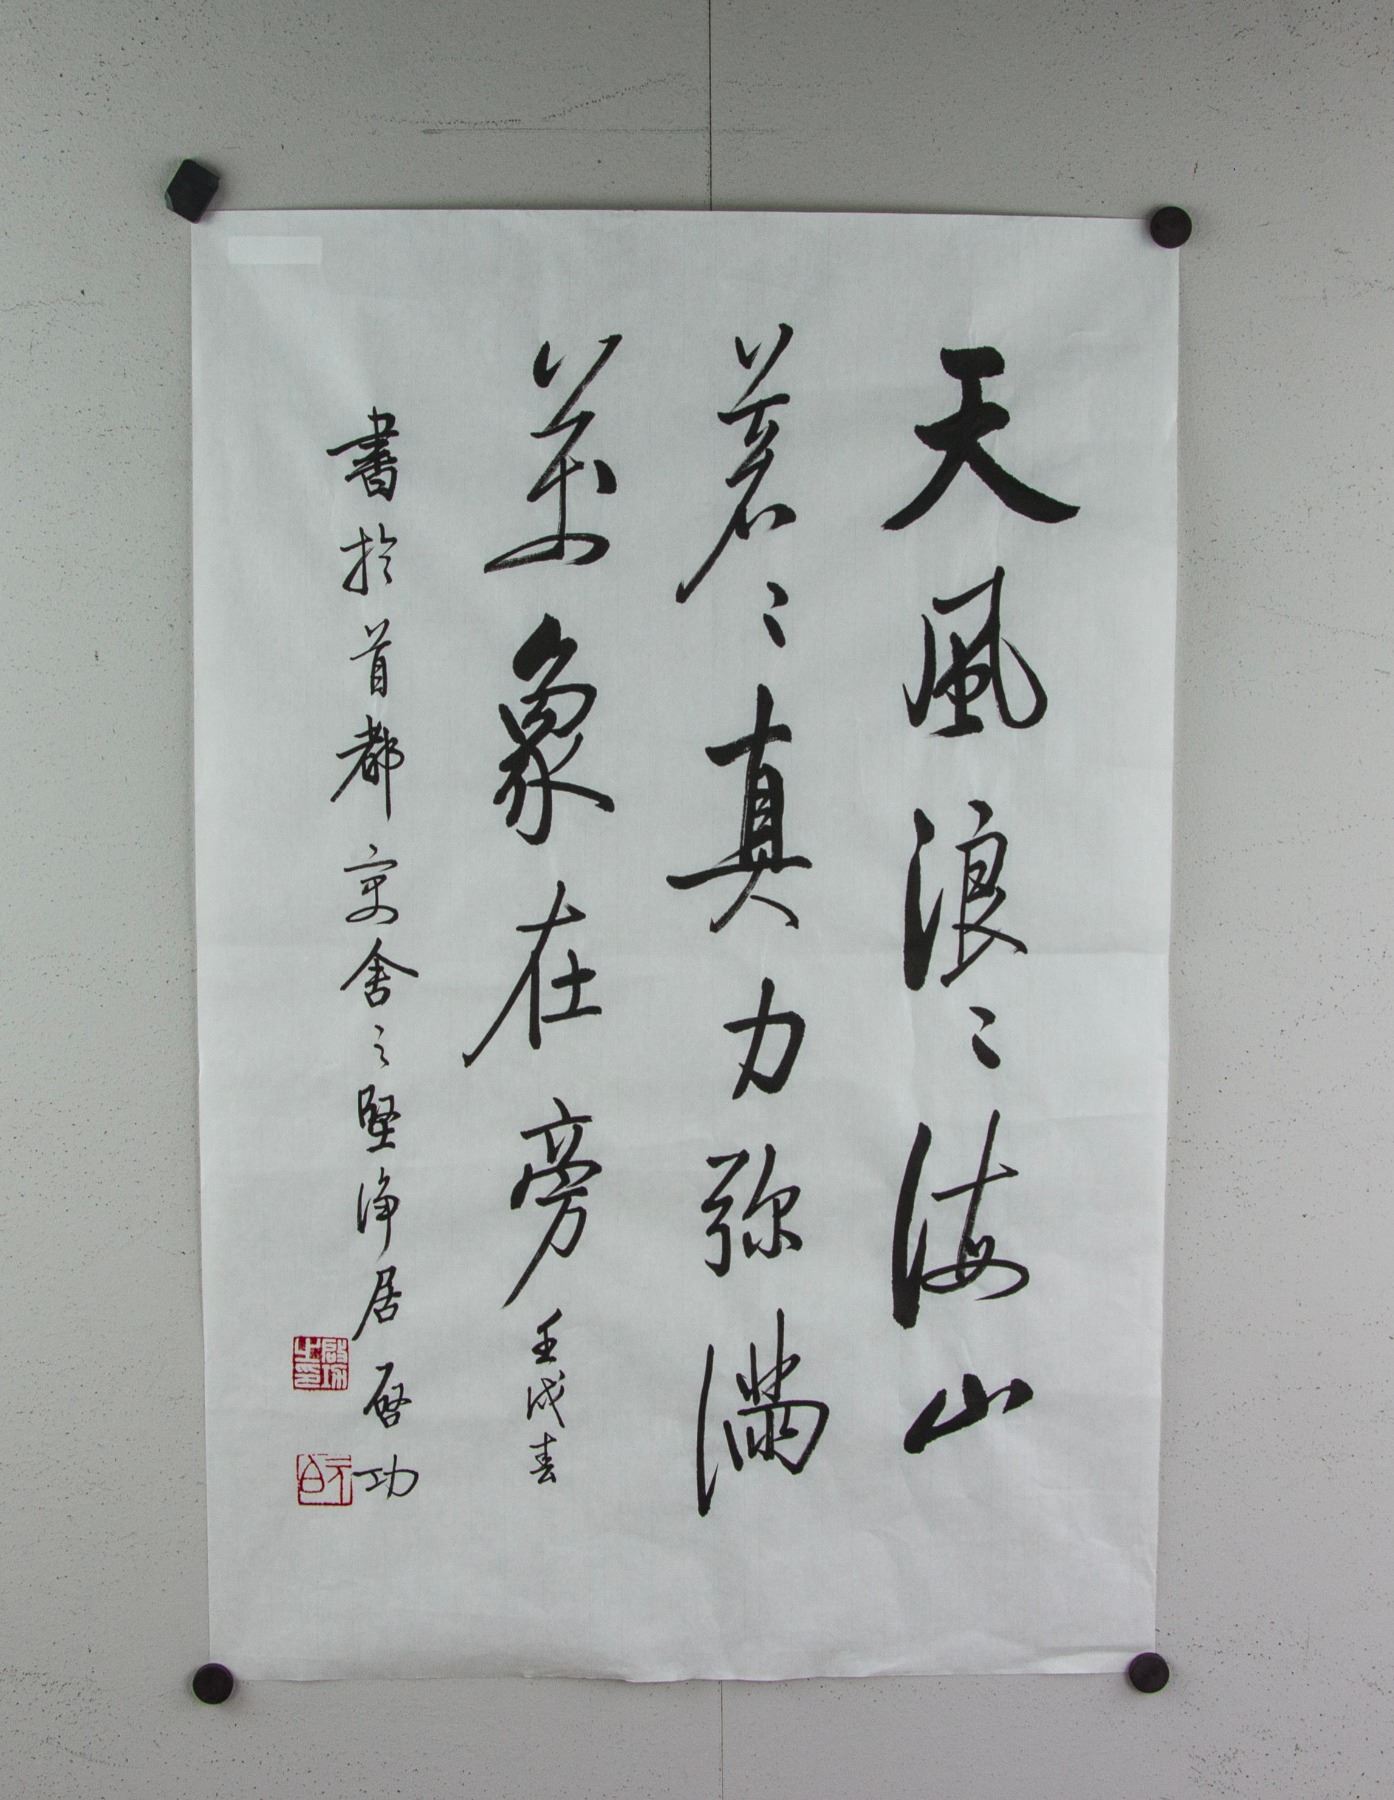 天風浪〻海山
蒼〻真力弥滿
萬象在旁 壬戌春
書於首都寓舍之堅淨居 啓功
啟功之印
元白